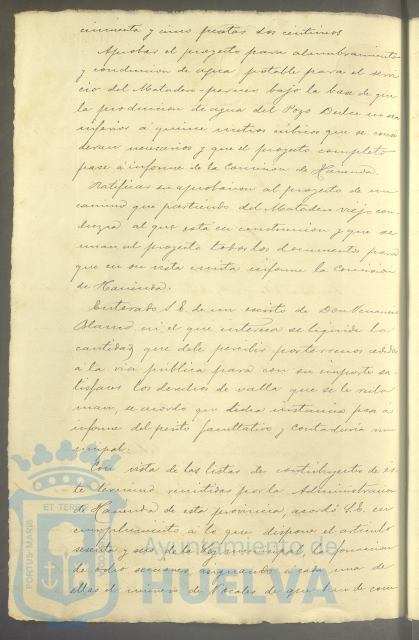 cincuenta y cinco pesetas dos centimos
Aprobar el proyecto para alumbramiento
y conduccion de agua potable para el servi
cio del Matadero bajo la base de que
la produccion de agua del Pozo Dulce no sea
inferior a quince metros cubicos que se consi
deran necesarios y que el proyecto completo
pase á informe de la Comision de Hacienda.
Ratificar su aprobacion al proyecto de un
camino que partiendo del Matadero viejo con
duzca al que está en construccion y que se
unan al proyecto todos los documentos para
que en su vista emita informe la Comision
de Hacienda.
Enterado S.E. de un escrito de Don Venancio
Blanco en el que interesa se liquide la
cantidad que debe percibir por terrenos cedidos
á la via publica para con su importe sa-
tisfacer los derechos de valla que se le recla
man, se acordó que dicha instancia pase á
informe del perito facultativo y Contaduria mu
nicipal.
Con vista de las listas de contribuyentes de es
te término remitidas por la Administracion
de Hacienda de esta provincia, acordó S.E. en
cumplimiento á lo que dispone el articulo
sesenta y seis de la ley municipal, la formacion
de ocho secciones asignando á cada una de
ellas el numero de Vocales de que han de com
PORTUS MARIS
ET TERRAE
Ayuntamiento de
HUELVA